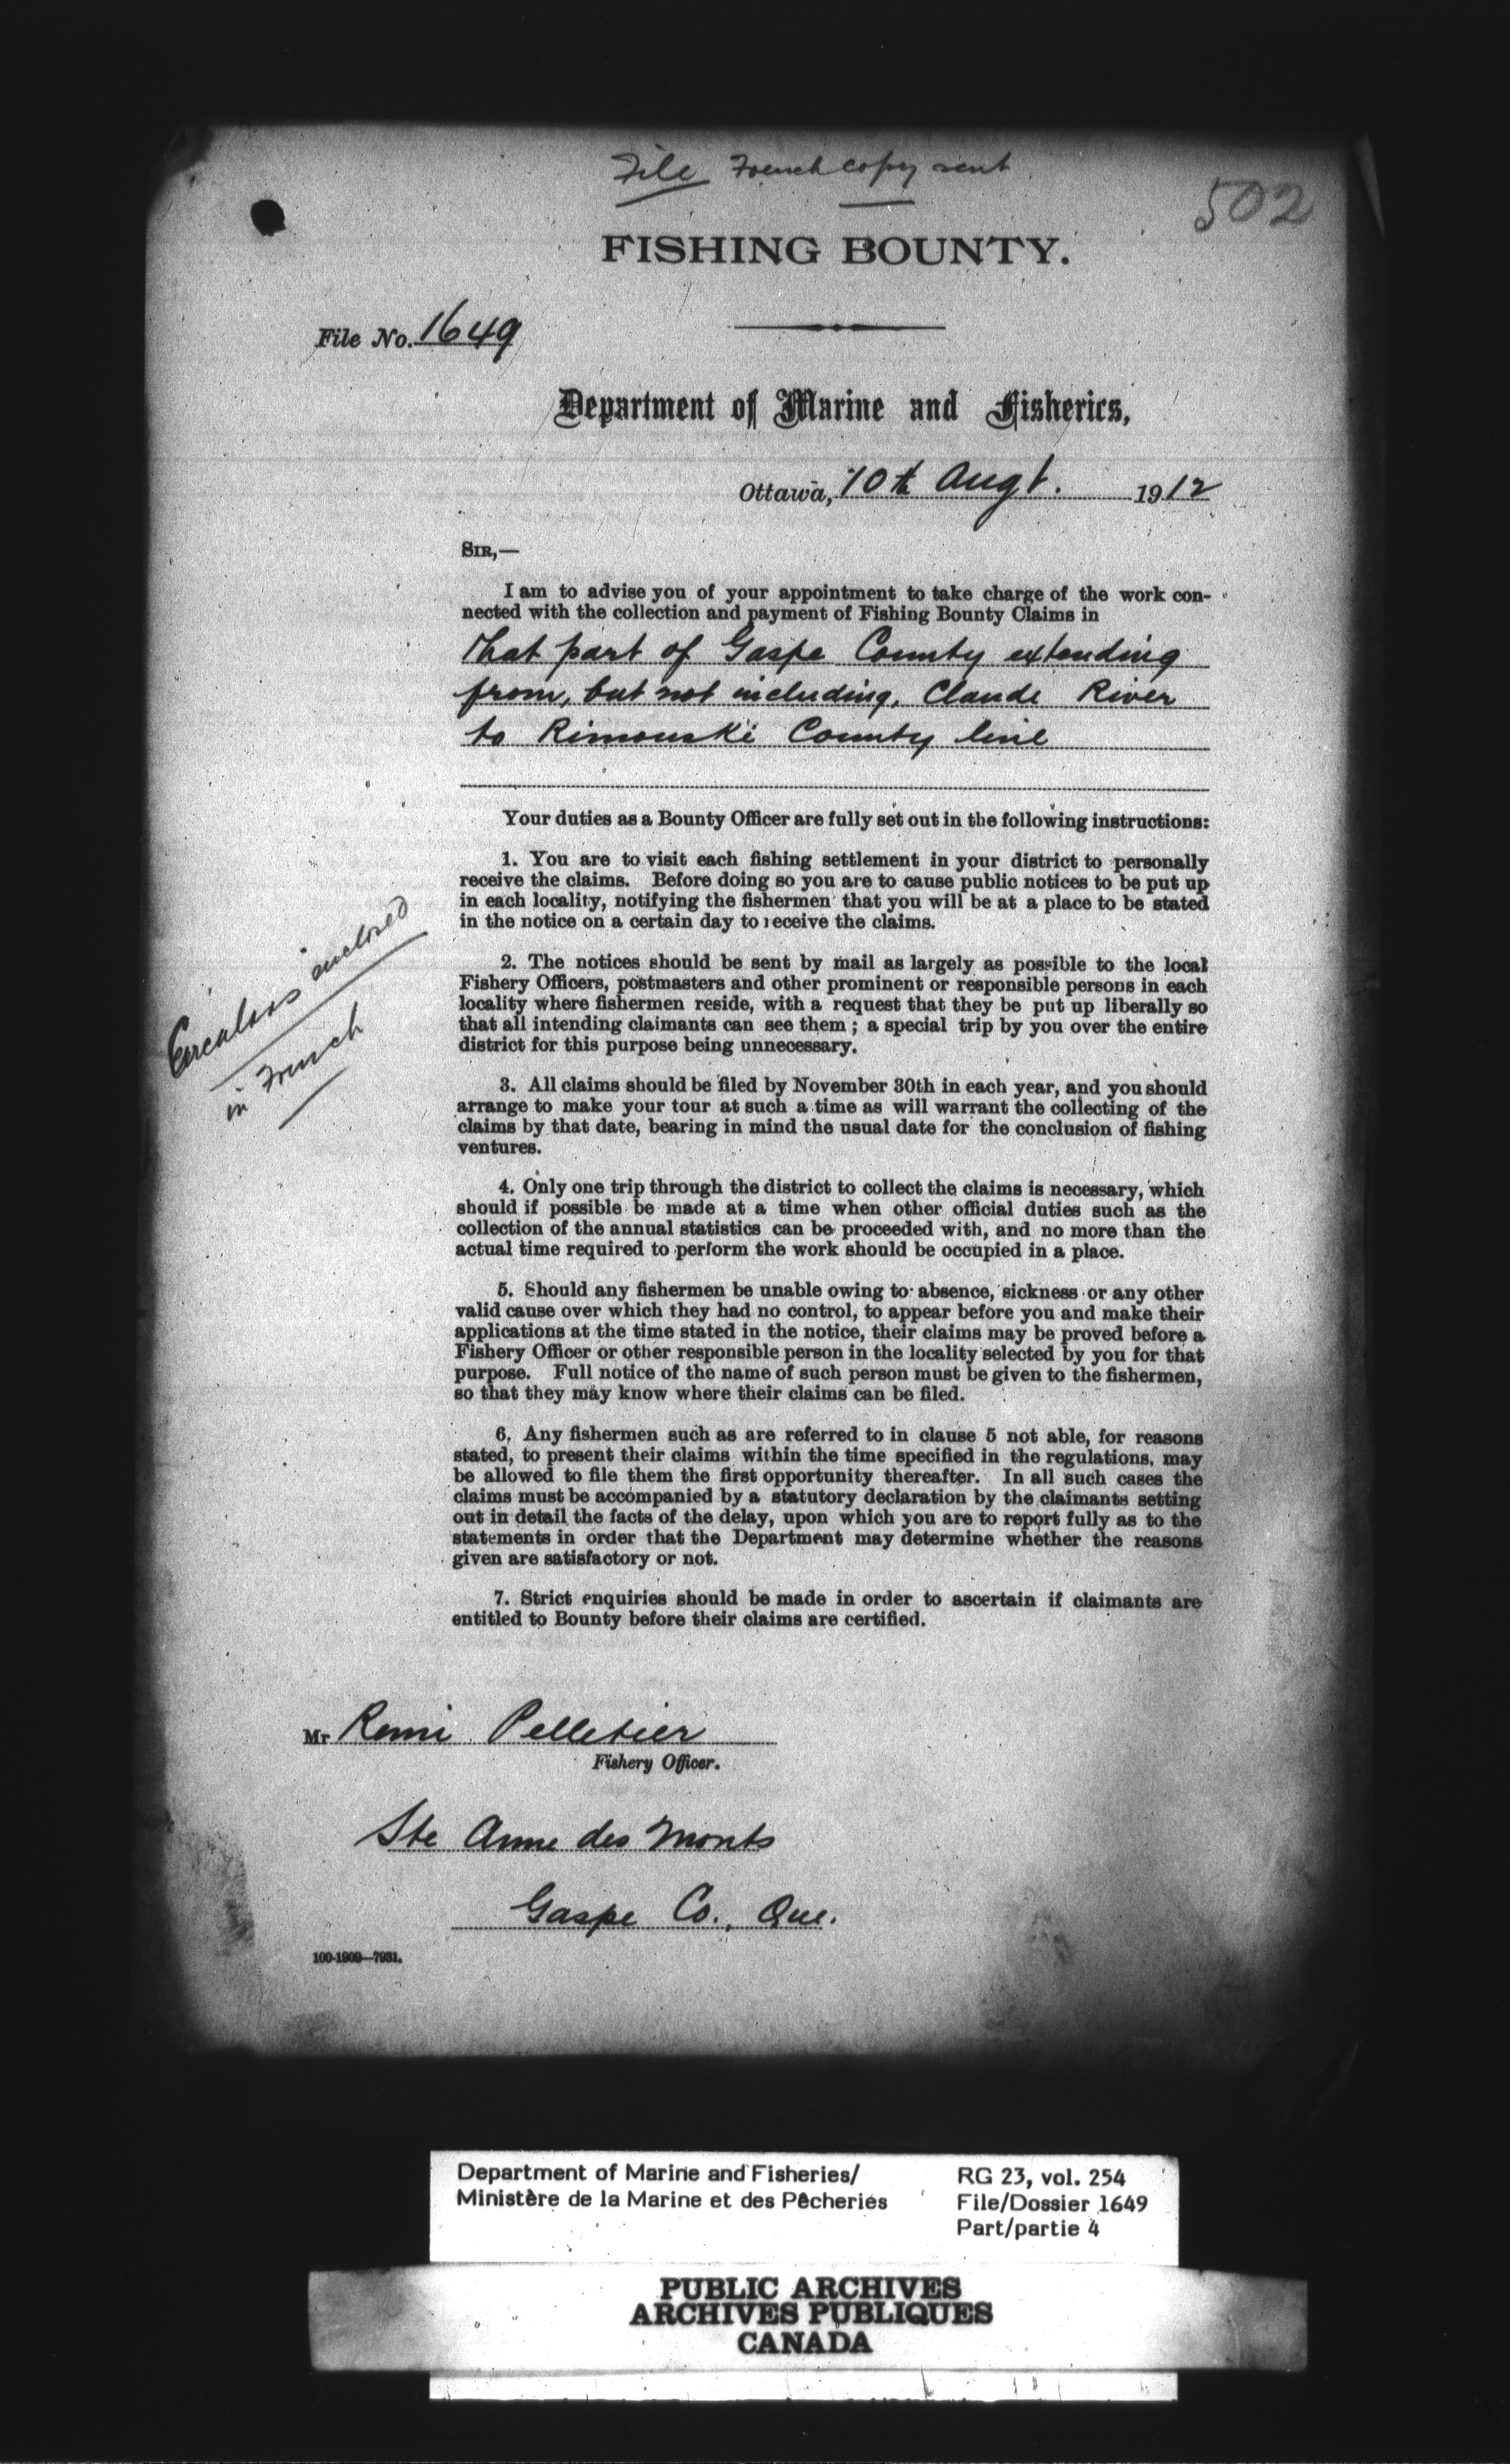 File French copy sent
502
FISHING BOUNTY.
File No. 1649
Department of Marine and Fisheries,
Ottawa, 10th Augt. 1912
SIR,—
I am to advise you of your appointment to take charge of the work con-
nected with the collection and payment of Fishing Bounty Claims in
that part of Gaspe County extending
from, but not including, Claude River
to Rimouski County line
Your duties as a Bounty Officer are fully set out in the following instructions:
1. You are to visit each fishing settlement in your district to personally
receive the claims. Before doing so you are to cause public notices to be put up
in each locality, notifying the fishermen that you will be at a place to be stated
in the notice on a certain day to receive the claims.
2. The notices should be sent by mail as largely as possible to the local
Fishery Officers, postmasters and other prominent or responsible persons in each
locality where fishermen reside, with a request that they be put up liberally so
that all intending claimants can see them; a special trip by you over the entire
district for this purpose being unnecessary.
Circulars enclosed
in French
3. All claims should be filed by November 30th in each year, and you should
arrange to make your tour at such a time as will warrant the collecting of the
claims by that date, bearing in mind the usual date for the conclusion of fishing
ventures.
4. Only one trip through the district to collect the claims is necessary, which
should if possible be made at a time when other official duties such as the
collection of the annual statistics can be proceeded with, and no more than the
actual time required to perform the work should be occupied in a place.
5. Should any fishermen be unable owing to absence, sickness or any other
valid cause over which they had no control, to appear before you and make their
applications at the time stated in the notice, their claims may be proved before a
Fishery Officer or other responsible person in the locality selected by you for that
purpose. Full notice of the name of such person must be given to the fishermen,
so that they may know where their claims can be filed.
6. Any fishermen such as are referred to in clause 5 not able, for reasons
stated, to present their claims within the time specified in the regulations, may
be allowed to file them the first opportunity thereafter. In all such cases the
claims must be accompanied by a statutory declaration by the claimants setting
out in detail the facts of the delay, upon which you are to report fully as to the
statements in order that the Department may determine whether the reasons
given are satisfactory or not.
7. Strict enquiries should be made in order to ascertain if claimants are
entitled to Bounty before their claims are certified.
Mr Remi Pelletier
Fishery Officer.
Ste Anne des Monts
Gaspe Co., Que.
100-1909—7931.
Department of Marine and Fisheries/
Ministère de la Marine et des Pêcheries
RG 23, vol. 254
File/Dossier 1649
Part/partie 4
PUBLIC ARCHIVES
ARCHIVES PUBLIQUES
CANADA